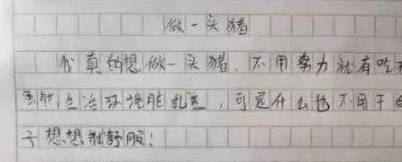 做一头猪
我真的想做一头猪、不用努力就有吃
虽然生活环境脏乱差，可是什么也不用干
子想想就舒服！